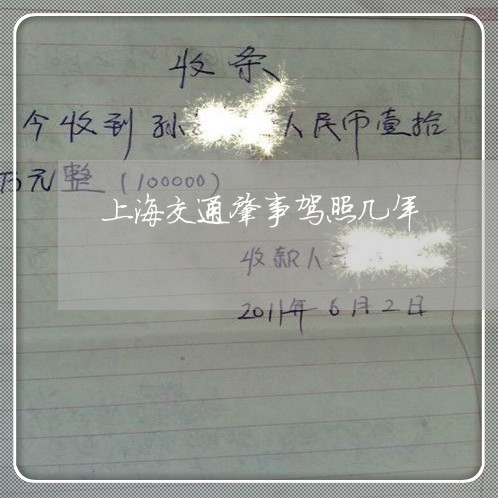 收条
今收到孙 人民币壹拾
万元整(100000)
上海交通肇事驾照几年
收款人
2011年6月2日